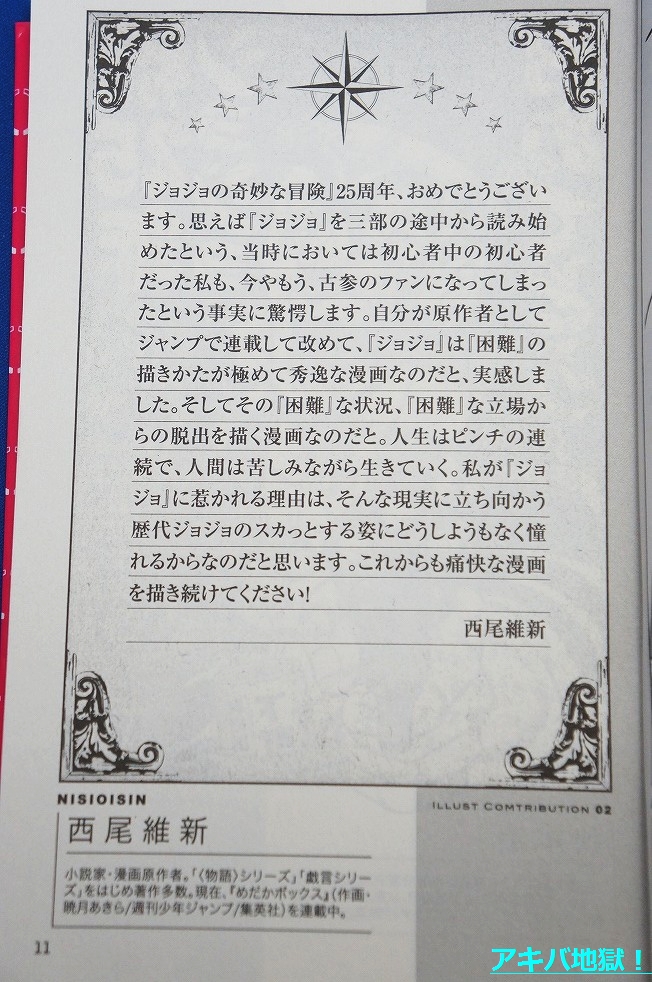 『ジョジョの奇妙な冒険』25周年、おめでとうござい
ます。思えば『ジョジョ』を三部の途中から読み始
めたという、当時においては初心者中の初心者
だった私も、今やもう、古参のファンになってしまっ
たという事実に驚愕します。自分が原作者として
ジャンプで連載して改めて、『ジョジョ』は『困難』の
描きかたが極めて秀逸な漫画なのだと、実感しま
した。そしてその『困難』な状況、『困難』な立場か
らの脱出を描く漫画なのだと。人生はピンチの連
続で、人間は苦しみながら生きていく。私が『ジョ
ジョ』に惹かれる理由は、そんな現実に立ち向かう
歴代ジョジョのスカっとする姿にどうしようもなく憧
れるからなのだと思います。これからも痛快な漫画
を描き続けてください!
西尾維新
NISIOISIN
ILLUST COMTRIBUTION 02
西尾維新
小説家・漫画原作者。「〈物語〉シリーズ」「戯言シリー
ズ」をはじめ著作多数。現在、『めだかボックス』(作画・
暁月あきら/週刊少年ジャンプ/集英社)を連載中。
11
アキバ地獄!